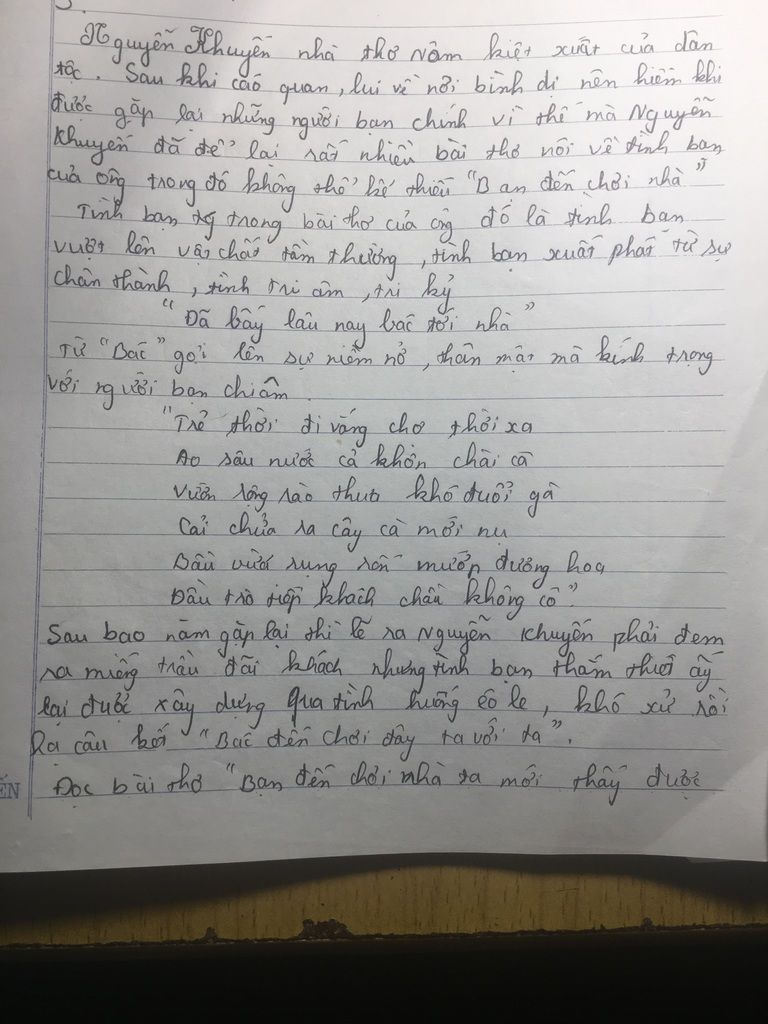 Nguyễn Khuyến nhà thơ Nôm kiệt xuất của dân
tộc. Sau khi cáo quan, lui về nơi bình dị nên hiếm khi
được gặp lại những người bạn chính vì thế mà Nguyễn
Khuyến đã để lại rất nhiều bài thơ nói về tình bạn
của ông trong đó không thể kể thiếu "Bạn đến chơi nhà"
Tình bạn trong bài thơ của ông đó là tình bạn
vượt lên vật chất tầm thường, tình bạn xuất phát từ sự
chân thành, tình tri âm, tri kỷ
"Đã bấy lâu nay bác tới nhà"
Từ "Bác" gợi lên sự niềm nở, thân mật mà kính trọng
với người bạn
"Trẻ thời đi vắng chợ thời xa
Ao sâu nước cả khôn chài cá
Vườn rộng rào thưa khó đuổi gà
Cải chửa ra cây cà mới nụ
Bầu vừa rụng rốn mướp đương hoa
Đầu trò tiếp khách chầu không có".
Sau bao năm gặp lại thì lẽ ra Nguyễn Khuyến phải đem
ra miếng trầu đãi khách nhưng tình bạn thắm thiết ấy
lại được xây dựng qua tình huống éo le, khó xử rồi
Ra câu kết "Bác đến chơi đây ta với ta".
ẾN
Đọc bài thơ "Bạn đến chơi nhà ta mới thấy được